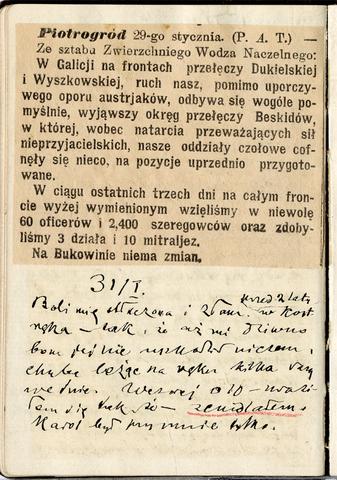 Piotrogród 29-go stycznia. (P. A. T.) —
Ze sztabu Zwierzchniego Wodza Naczelnego:
W Galicji na frontach przełęczy Dukielskiej
i Wyszkowskiej, ruch nasz, pomimo uporczy-
wego oporu austrjaków, odbywa się wogóle po-
myślnie, wyjąwszy okręg przełęczy Beskidów,
w której, wobec natarcia przeważających sił
nieprzyjacielskich, nasze oddziały czołowe cof-
nęły się nieco, na pozycje uprzednio przygoto-
wane.
W ciągu ostatnich trzech dni na całym fron-
cie wyżej wymienionym wzięliśmy w niewolę
60 oficerów i 2,400 szeregowców oraz zdoby-
liśmy 3 działa i 10 mitraljez.
Na Bukowinie niema zmian.
31/I.
przed 2 laty
Boli mię stłuczona i w kost
ręka — tak, że aż mi dziwno
bom jej nie niczem,
chyba leżąc na ręku kilka razy
we dnie. Wczoraj o 10 — 
się tak że — zemdlałem.
Karol był przy mnie tylko.